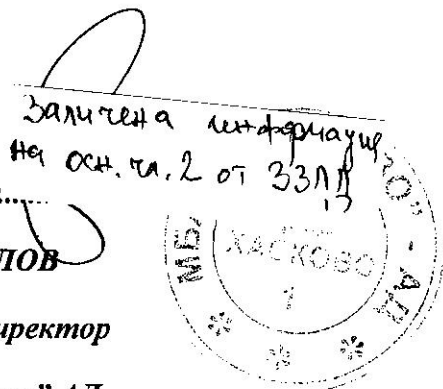 Заличена информация
на осн. чл. 2 от ЗЗЛД
ЛОВ
иректор
" АД
МБ
О" - АД
ХАСКОВО
1